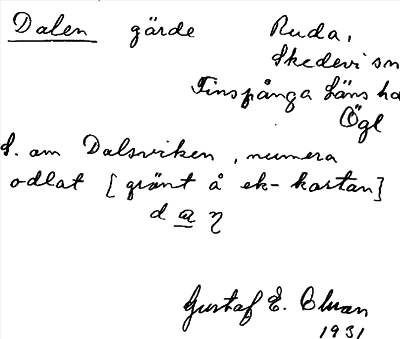 Dalen gärde Ruda,
Skedevi sn
Finspånga läns hd
Ögl
S. om Dalsviken, numera
odlat [grönt å ek-kartan]
d a η
Gustaf E. Olsson
1931